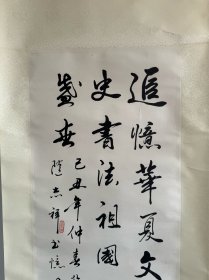 追憶華夏文
史書法祖國
盛世
己丑年仲春
隨志祥書憶